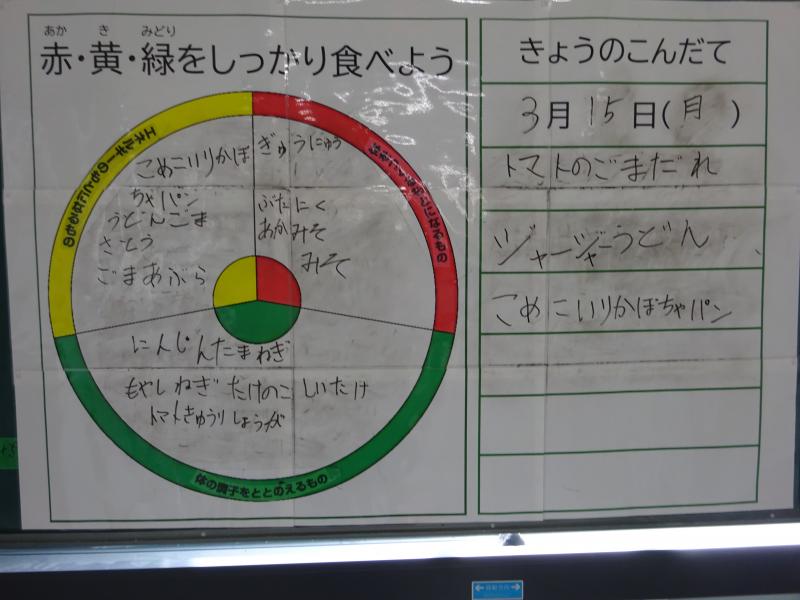 あか き みどり
赤・黄・緑をしっかり食べよう
エネルギーのもとになるもの
こめこいりかぼ
ちゃパン
うどんごま
さとう
ごまあぶら
ぎゅうにゅう
ぶたにく
あかみそ
みそ
にんじんたまねぎ
もやしねぎ たけのこ しいたけ
トマトきゅうり しょうが
体の調子をととのえるもの
きょうのこんだて
3月15日(月)
トマトのごまだれ
ジャージャーうどん
こめこいりかぼちゃパン